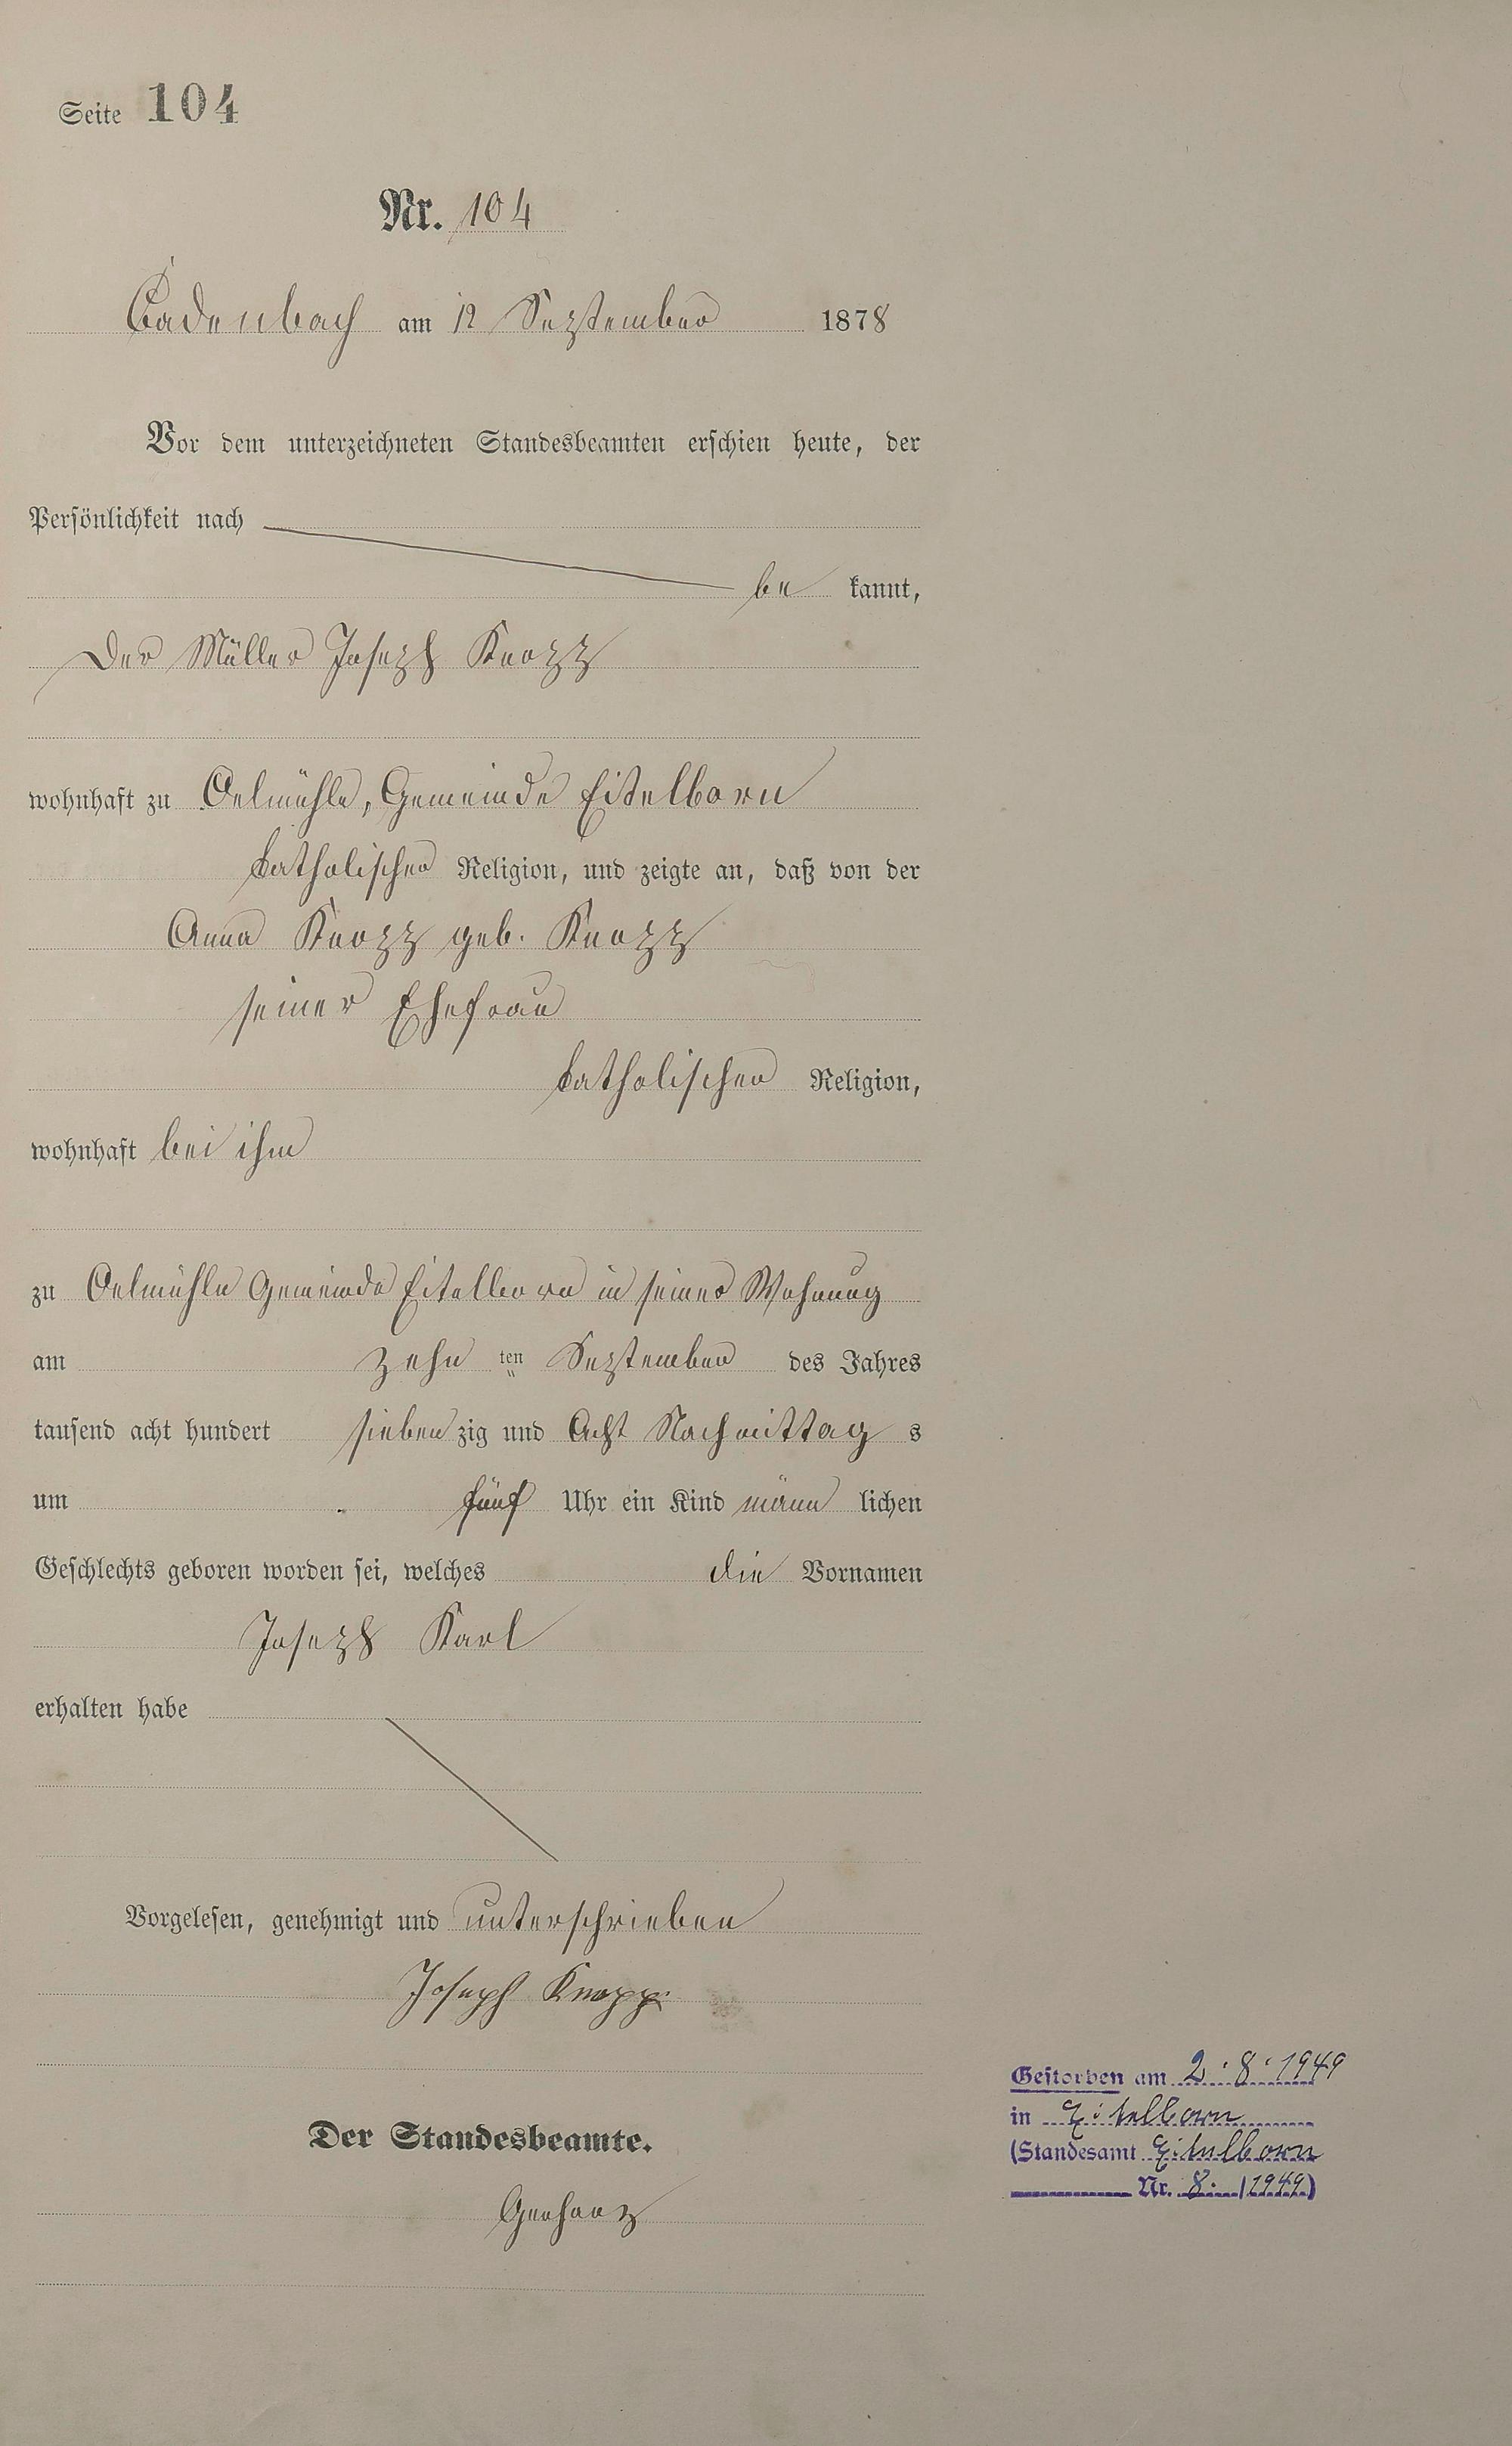 Seite 104
Nr. 104
Cadenbach am 12 September 1878
Vor dem unterzeichneten Standesbeamten erschien heute, der
Persönlichkeit nach
be kannt,
Der Müller Joseph Knopp
wohnhaft zu Oelmühle, Gemeinde Eitelborn
katholischer Religion, und zeigte an, daß von der
Anna Knopp geb. Knopp
seiner Ehefrau
katholischer Religion,
wohnhaft bei ihm
zu Oelmühle Gemeinde Eitelborn in seiner Wohnung
am zehn ten September des Jahres
tausend acht hundert sieben zig und Acht Nachmittag s
um fünf Uhr ein Kind männ lichen
Geschlechts geboren worden sei, welches die Vornamen
Joseph Karl
erhalten habe
Vorgelesen, genehmigt und unterschrieben
Joseph Knopp
Der Standesbeamte.
Gerharz
Gestorben am 2.8.1949
in Eitelborn
(Standesamt Eitelborn
Nr. 8./1949)